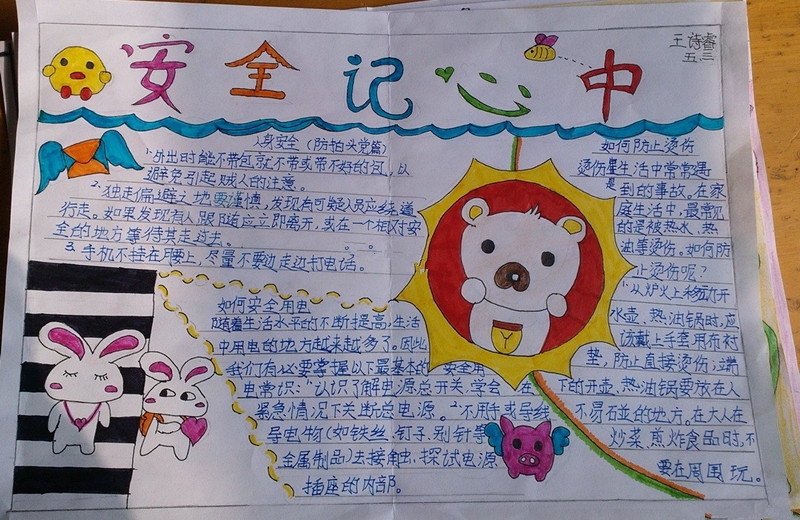 安全记心中
王诗睿
五.三
人身安全（防拍头党篇）
1.外出时能不带包就不带或带不好的包，以
避免引起贼人的注意。
2.独走偏避之地要谨慎，发现有可疑人员应绕道
行走。如果发现有人跟随应立即离开，或在一个相对安
全的地方等待其走过去。
3.手机不挂在腰上，尽量不要边走边打电话。
如何安全用电
随着生活水平的不断提高，生活
中用电的地方越来越多了。因此，
我们有必要掌握以下最基本的安全用
电常识：1.认识了解电源总开关，学会在
紧急情况下关断总电源。2.不用手或导线
导电物(如铁丝、钉子、别针等
金属制品)去接触、探试电源
插座的内部。
如何防止烫伤
烫伤是生活中常常遇
到的事故，在家
庭生活中，最常见
的是被热水、热
油等烫伤。如何防
止烫伤呢？
1.从炉火上移动开
水壶、热油锅时，应
该戴上手套用布衬
垫，防止直接烫伤；端
下的开壶、热油锅要放在人
不易碰的地方。在大人在
炒菜、煎炸食品时，不
要在周围玩。